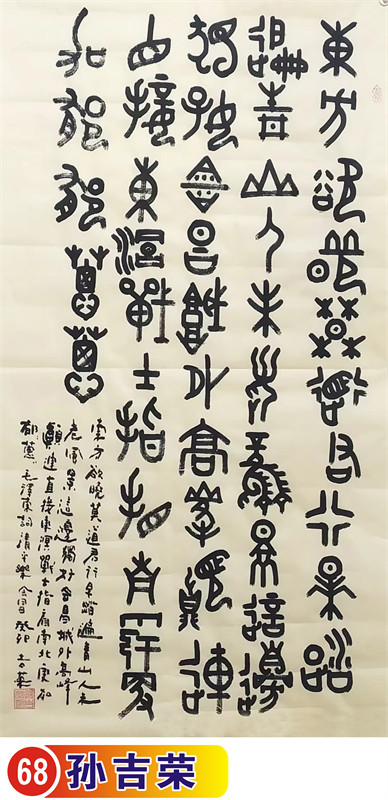 東方欲曉莫道君行早踏
遍青山人未老風景這邊
獨好會昌城外高峰顛連
直接東溟戰士指看南粵更
加郁郁蔥蔥
東方欲曉莫道君行早踏遍青山人未
老風景這邊獨好會昌城外高峰
顛連直接東溟戰士指看南粵更加
郁蔥 毛澤東詞清平樂會昌 癸卯 吉荣
68 孙吉荣